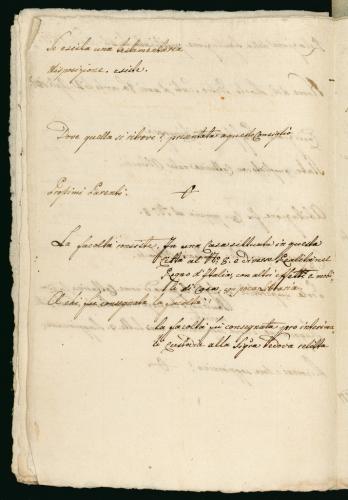 Se esista una testamentaria
disposizione. esiste.
Dove quella si trova? presentata a questo Consiglio
Prossimi Parenti:
La facoltà consiste. In una Casa situata in questa
Città al No 8. e diverse Realità nel
Regno d'Italia, con altri effetti e mobi-
li di Casa, con
A chi fu consegnata la facoltà:
la facoltà fu consegnata pro interima-
li custodia alla Sigra Vedova relitta